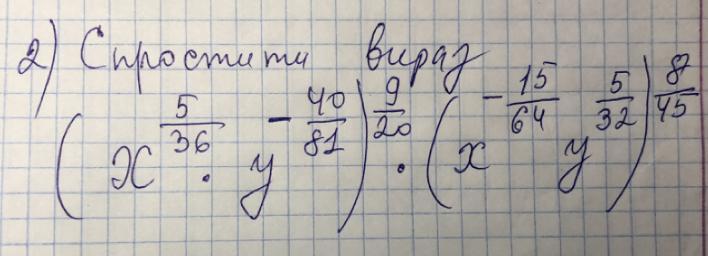 2) Спростити вираз
(x^{5/36} · y^{-40/81})^{9/20} · (x^{-15/64} y^{5/32})^{8/45}